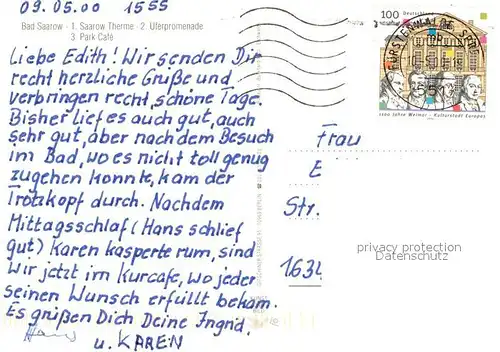 09.05.00 1555
Bad Saarow · 1. Saarow Therme · 2. Uferpromenade
3. Park Café
Liebe Edith! Wir senden Dir
recht herzliche Grüße und
verbringen recht schöne Tage.
Bisher lief es auch gut, auch
sehr gut, aber nach dem Besuch
im Bad, wo es nicht toll genug
zugehen konnte, kam der
Trotzkopf durch. Nachdem
Mittagsschlaf (Hans schlief
gut) Karen kasperte rum, sind
Wir jetzt im Kurcafe, wo jeder
seinen Wunsch erfüllt bekam.
Es grüßen Dich Deine Ingrid.
Hans
u. KAREN
100 Deutschland
FÜRSTENWALDE, SPREE
1100 Jahre Weimar - Kulturstadt Europas
Frau
E
Str.
1634
privacy protection
Datenschutz